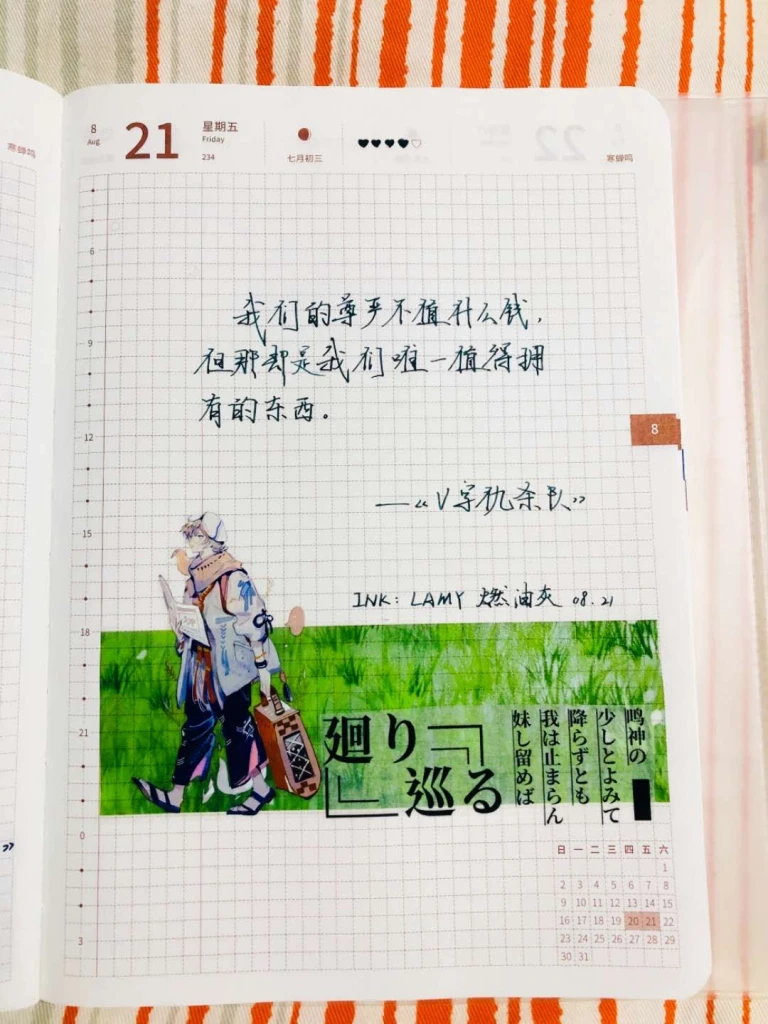 寒蝉鸣
8
Aug
21
星期五
Friday
234
七月初三
22
寒蝉鸣
6
9
12
15
18
21
0
3
8
我们的尊严不值什么钱，
但那却是我们唯一值得拥
有的东西。
——《V字仇杀队》
INK: LAMY 燃油灰 08.21
廻り
巡る
鸣神の
少しとよみて
降らずとも
我は止まらん
妹し留めば
》
日 一 二 三 四 五 六
1
2 3 4 5 6 7 8
9 10 11 12 13 14 15
16 17 18 19 20 21 22
23 24 25 26 27 28 29
30 31